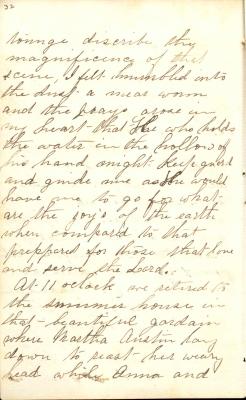 32
tounge discribe the
magnificence of that
scene, I felt humbled into
the dust a mear worm
and the prayr arose in
my heart that He who holds
the water in the hollow of
his hand might keep gaurd
and guide me as He would
have me to go for what
are the joy's of the earth
when compared to that
preppared for those that love
and serve the Lord.
At 11 oclock we retired to
the summer house in
that beautiful gardain
where Martha Austin lay
down to reast her weary
head while Anna and